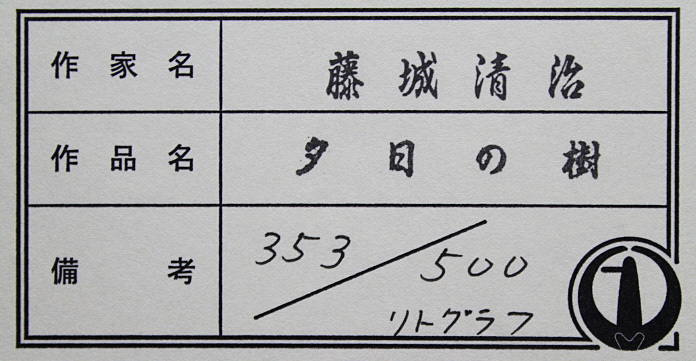 作家名 藤城清治
作品名 夕日の樹
備考 353/500
リトグラフ